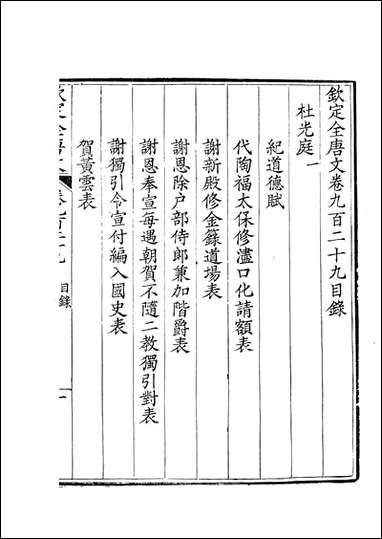 欽定全唐文卷九百二十九目錄
杜光庭一
紀道德賦
代陶福太保修濜口化請額表
謝新殿修金籙道場表
謝恩除户部侍郎兼加階爵表
謝恩奉宣每遇朝賀不隨二教獨引對表
謝獨引令宣付編入國史表
賀黃雲表
目錄
一